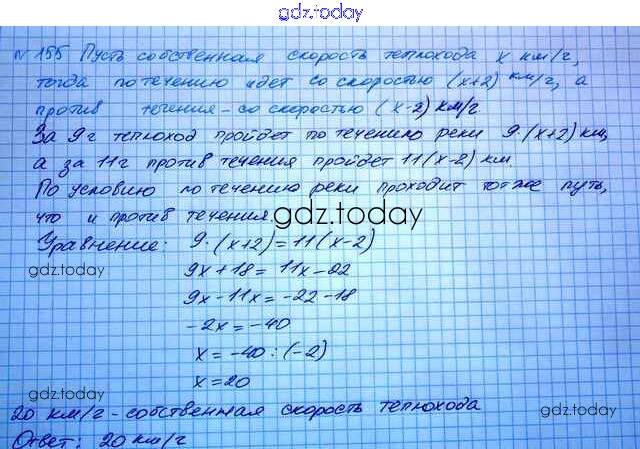 gdz.today
№ 155 Пусть собственная скорость теплохода x км/г,
тогда по течению идет со скоростью (x+2) км/г, а
против течения - со скоростью (x-2) км/г
За 9г теплоход пройдет по течению реки 9·(x+2) км,
а за 11г против течения пройдет 11(x-2) км
По условию по течению реки проходит тот же путь,
что и против течения.
gdz.today
Уравнение: 9·(x+2)=11(x-2)
gdz.today
9x+18=11x-22
9x-11x=-22-18
-2x=-40
x=-40:(-2)
gdz.today
x=20
20 км/г - собственная скорость теплохода
gdz.today
Ответ: 20 км/г